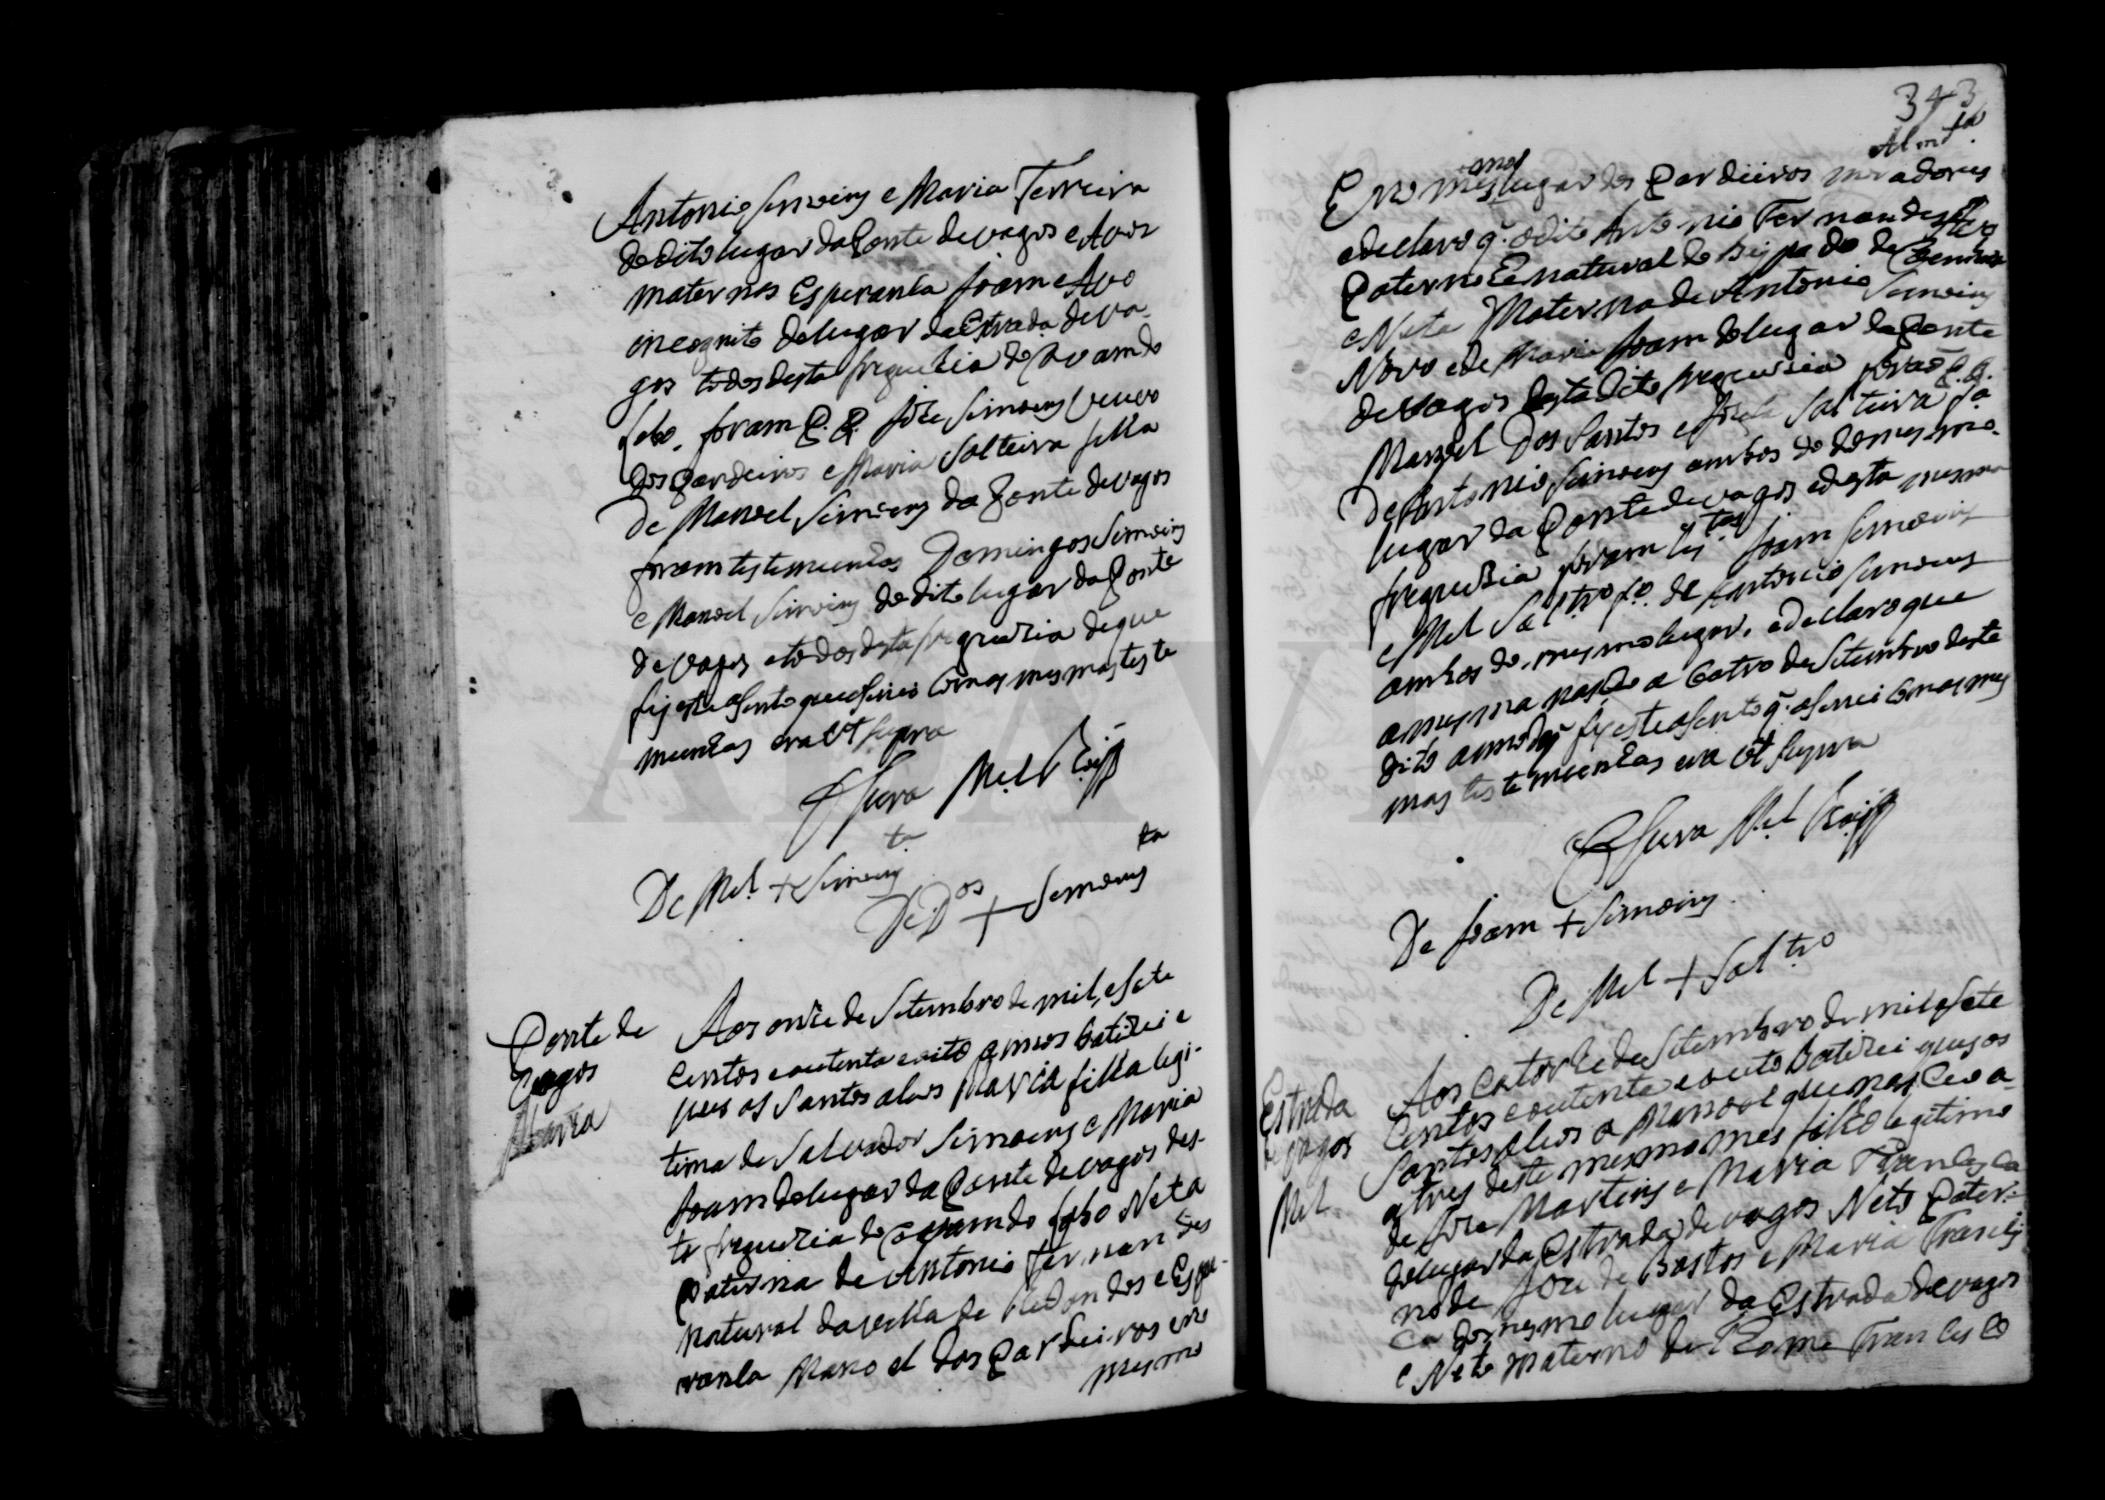 Antonio Simoens e Maria Ferreira
do dito lugar da Ponte de vagos e Avos
maternos Esperanca Joam e Avo
incognito do lugar da Estrada de va-
gos todos desta freguesia de Covam do
Lobo. foram P. P. Joze Simoens
dos Cardeiros e Maria Solteira filha
de Manoel Simoens da Ponte de vagos
foram testemunhas Domingos Simoens
e Manoel Simoens do dito lugar da Ponte
de vagos e todos desta freguezia de que
fiz este asento que asinei com as mesmas teste
munhas era ut supra
O Cura Mel
De Mel + Simoens ta
De Dos + Simoens ta
Ponte de
Vagos
Maria
Aos onze de Setembro de mil, e sete
centos e outenta e oito annos batizei e
pus os Santos olios Maria filha legi-
tima de Salvador Simoens e Maria
Joam do lugar da Ponte de vagos des-
ta freguezia de Covam do Lobo Neta
Paterna de Antonio Fernandes
natural da vilha de Redondos e Espe-
ranca Manoel dos Cardeiros e no
mesmo
343
E no mesmo lugar dos Cardeiros moradores
e declaro q. o dito Antonio Fernandes Avo
Paterno he natural do bispado de
e Neta Materna de Antonio Simoens
Novo e de Maria Joam do lugar da Ponte
de vagos desta dita freguezia foram P. P.
Manoel dos Santos e Solteira fa
de Antonio Simoens ambos do do mesmo
lugar da Ponte de vagos e desta mesma
freguezia foram tes tas Joam Simoens
e Mel Soltro fo. de Antonio Simoens
ambos do mesmo lugar, e declaro que
a mesma nasceo a coatro de Setembro deste
dito anno de q fiz este asento q. asinei com as mes
mas testemunhas era ut supra
O Cura Mel
De Joam + Simoens
De Mel + Soltro
Estrada
de vagos
Mel
Aos catorze de Setembro de mil e sete
centos e outenta e outo batizei e pus os
Santos olios a Manoel que nasceo a
os tres deste mesmo mes filho legitimo
de Joze Martins e Maria Francisca
do lugar da Estrada de vagos Neto Pater-
no de Joze de Bastos e Maria Francis
ca do mesmo lugar da Estrada de vagos
e Neto materno de Thome Francisco